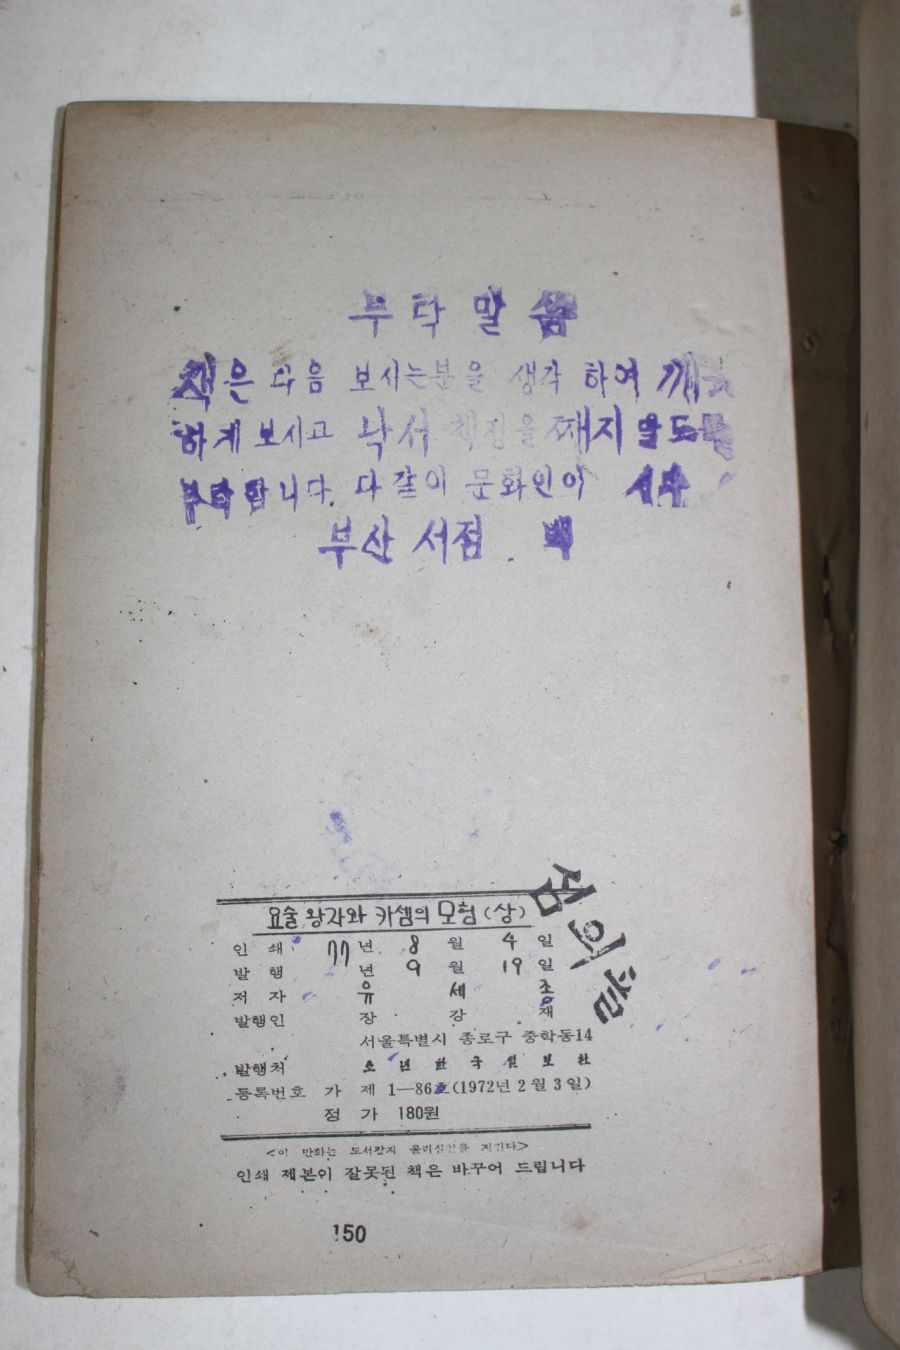 부탁말씀
책은 다음 보시는분을 생각 하여 깨끗
하게 보시고 낙서 책장을 째지 말도록
부탁합니다. 다같이 문화인이
부산 서점. 백
심의필
요술 왕자와 카셈의 모험(상)
인쇄 77년 8월 4일
발행 년 9월 19일
저자 유세종
발행인 장강재
서울특별시 종로구 중학동14
발행처 소년한국일보사
등록번호 가 제 1—86호(1972년 2월 3일)
정가 180원
<이 만화는 도서잡지 윤리실천을 지킨다>
인쇄 제본이 잘못된 책은 바꾸어 드립니다
150